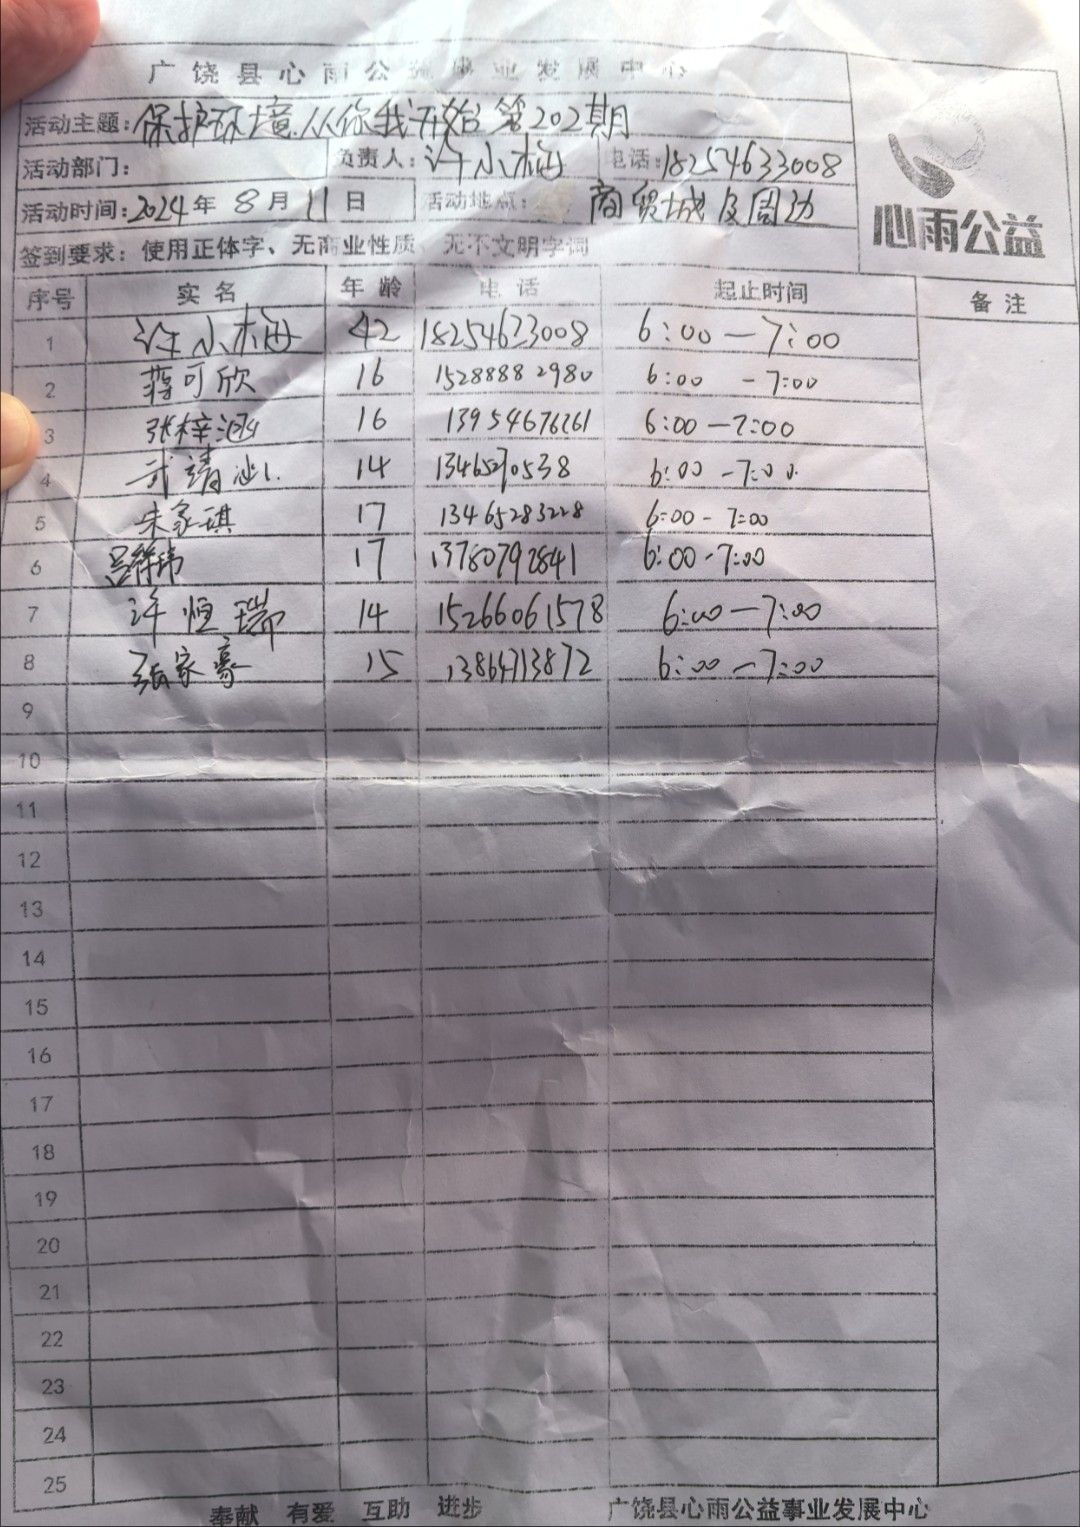 广饶县心雨公益事业发展中心
活动主题:保护环境.从你我开始第202期
心雨公益
活动部门: 负责人:许小梅 电话:18254633008
活动时间:2024年8月11日 活动地点: 商贸城及周边
签到要求:使用正体字、无商业性质、无不文明字词
序号 实名 年龄 电话 起止时间 备注
1 许小梅 42 18254623008 6:00—7:00
2 蒋可欣 16 15288882980 6:00 -7:00
3 张梓涵 16 13954676261 6:00—7:00
4 武靖 14 13465270538 6:00 -7:00
5 朱家琪 17 13465283228 6:00-7:00
6 吕祥玮 17 13780792841 6:00-7:00
7 许恒瑞 14 15266061578 6:00—7:00
8 张家豪 15 13864713872 6:00—7:00
9
10
11
12
13
14
15
16
17
18
19
20
21
22
23
24
25
奉献 有爱 互助 进步 广饶县心雨公益事业发展中心